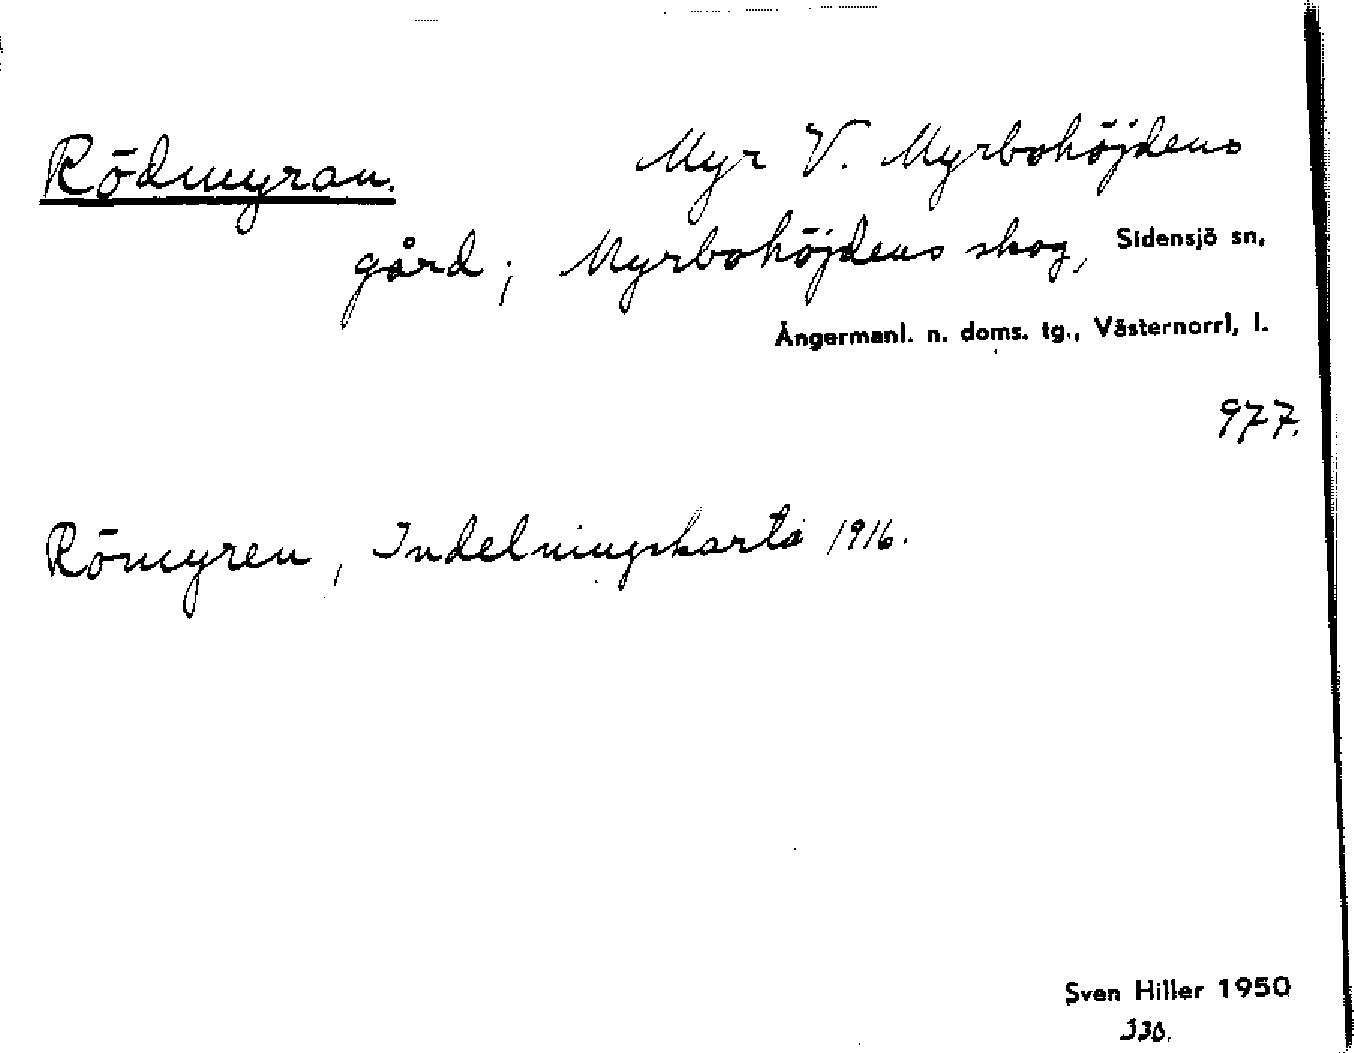 Rödmyran. Myr V. Myrbohöjdens
gård; Myrbohöjdens skog, Sidensjö sn,
Ångermanl. n. doms. tg., Västernorrl. l.
977.
Römyren, Indelningskarta 1916.
Sven Hiller 1950